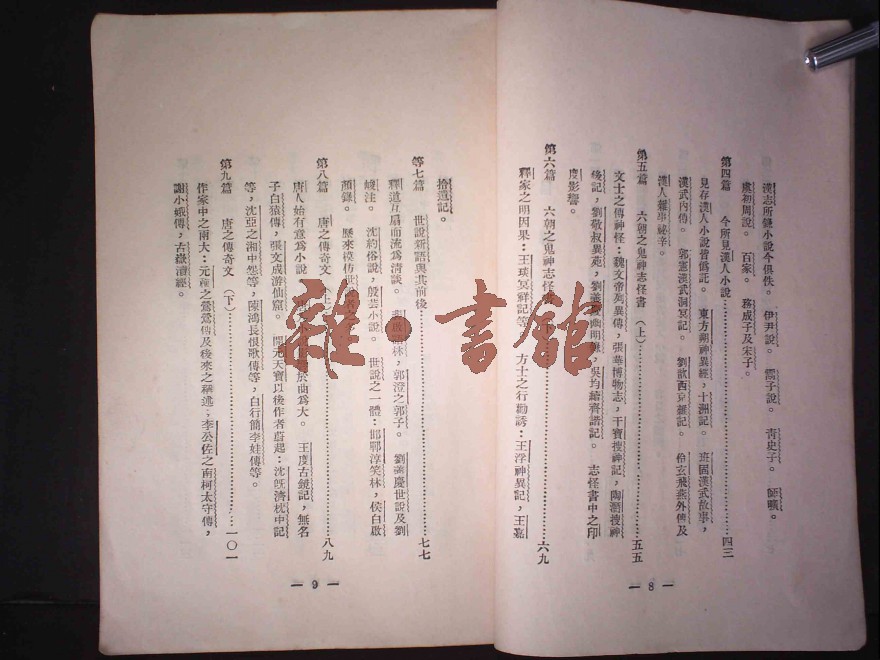 漢志所錄小說今俱佚。 伊尹說。 鬻子說。 靑史子。 師曠。
虞初周說。 百家。 務成子及宋子。
第四篇 今所見漢人小說…………四三
見存漢人小說皆僞託。 東方朔神異經，十洲記。 班固漢武故事，
漢武內傳。 郭憲漢武洞冥記。 劉歆西京雜記。 伶玄飛燕外傳及
漢人雜事祕辛。
第五篇 六朝之鬼神志怪書（上）…………五五
文士之傳神怪：魏文帝列異傳，張華博物志，干寶搜神記，陶潛搜神
後記，劉敬叔異苑，劉義慶幽明錄，吳均續齊諧記。 志怪書中之印
度影響。
第六篇 六朝之鬼神志怪書 下…………六九
釋家之明因果：王琰冥祥記等。 方士之行勸誘：王浮神異記，王嘉
— 8 —
拾遺記。
等七篇 世說新語與其前後…………七七
釋道互扇而流爲淸談。 林，郭澄之郭子。 劉義慶世說及劉
峻注。 沈約俗說，殷芸小說。 世說之一體：邯鄲淳笑林，侯白啟
顏錄。 歷來模仿世說
第八篇 唐之傳奇文（上）…………八九
唐人始有意爲小說 於曲爲大。 王度古鏡記，無名
子白猿傳，張文成游仙窟。 開元天寶以後作者蔚起：沈旣濟枕中記
等，沈亞之湘中怨等，陳鴻長恨歌傳等，白行簡李娃傳等。
第九篇 唐之傳奇文（下）…………一〇一
作家中之兩大：元稹之鶯鶯傳及後來之稱述；李公佐之南柯太守傳，
謝小娥傳，古嶽瀆經。
— 9 —
雜·書館